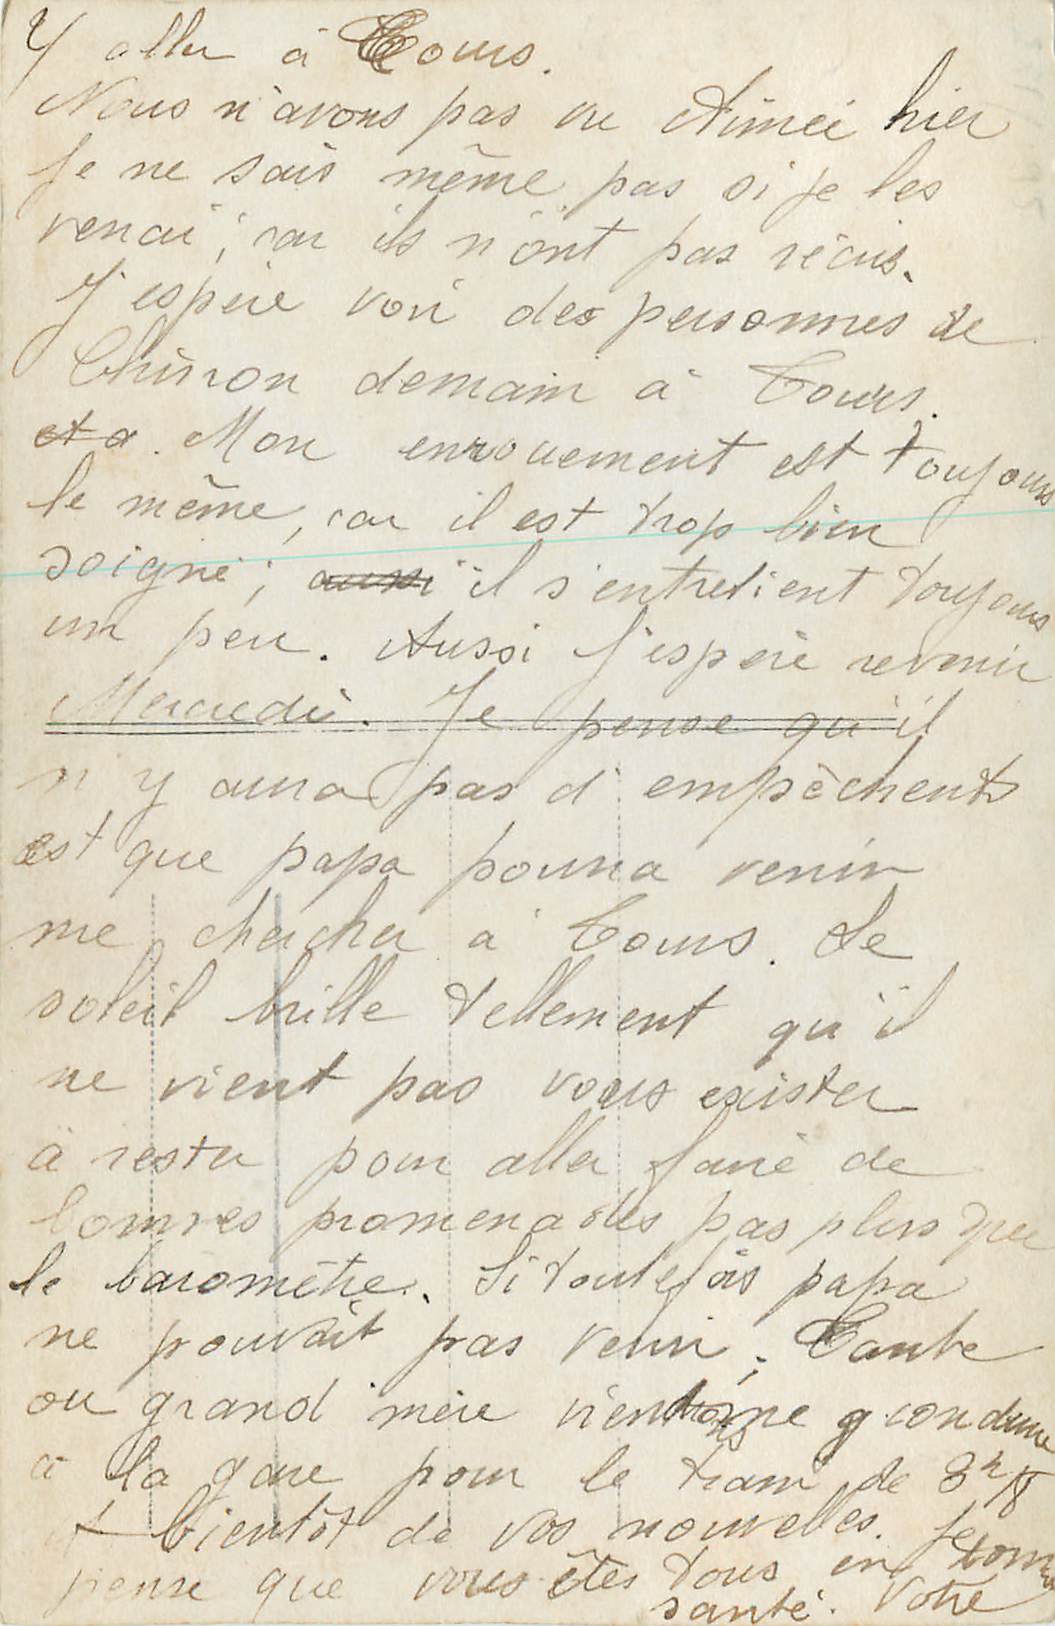 Y aller à Tours.
Nous n'avons pas vu Aimée hier
Je ne sais même pas si je les
verrai ; car ils n'ont pas récris.
J'espère voir des personnes de
Chinon demain à Tours.
et a. Mon enrouement est toujours
le même, car il est trop bien
soigné ; aussi il s'entretient toujours
un peu. Aussi j'espère revenir
Mercredi. Je pense qu'il
n'y aura pas d'empêchents
est que papa pourra venir
me chercher à Tours. Le
soleil brille tellement qu'il
ne vient pas vous exister
à rester pour aller faire de
promenades pas plus que
le baromètre. Si toutefois papa
ne pouvait pas venir ; Tante
ou grand'mère me conduire
à la gare pour le train de 3h
A bientôt de vos nouvelles. Je
pense que vous êtes tous en bonne
santé. Votre